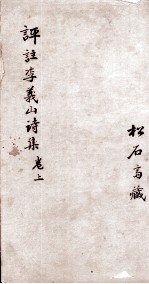 松石高藏
評註李義山詩集卷上